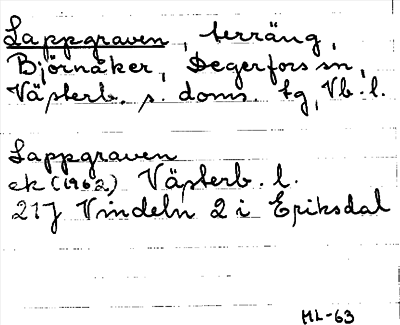 Lappgraven, terräng,
Björnåker, Degerfors sn,
Västerb. s. doms. tg, Vb. l.
Lappgraven
ek (1962) Västerb. l.
21J Vindeln 2 i Eriksdal
ML-63